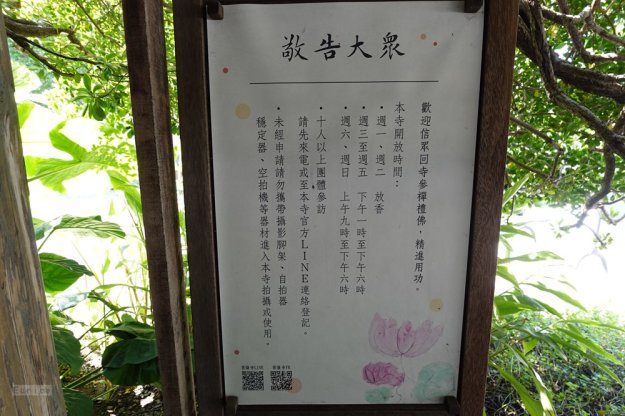 敬告大眾
歡迎信眾回寺參禪禮佛，精進用功。
本寺開放時間：
• 週一、週二　放香
• 週三至週五　下午一時至下午六時
• 週六、週日　上午九時至下午六時
• 十人以上團體參訪
請先來電或至本寺官方LINE連絡登記。
• 未經申請請勿攜帶攝影腳架、自拍器
穩定器、空拍機等器材進入本寺拍攝或使用。